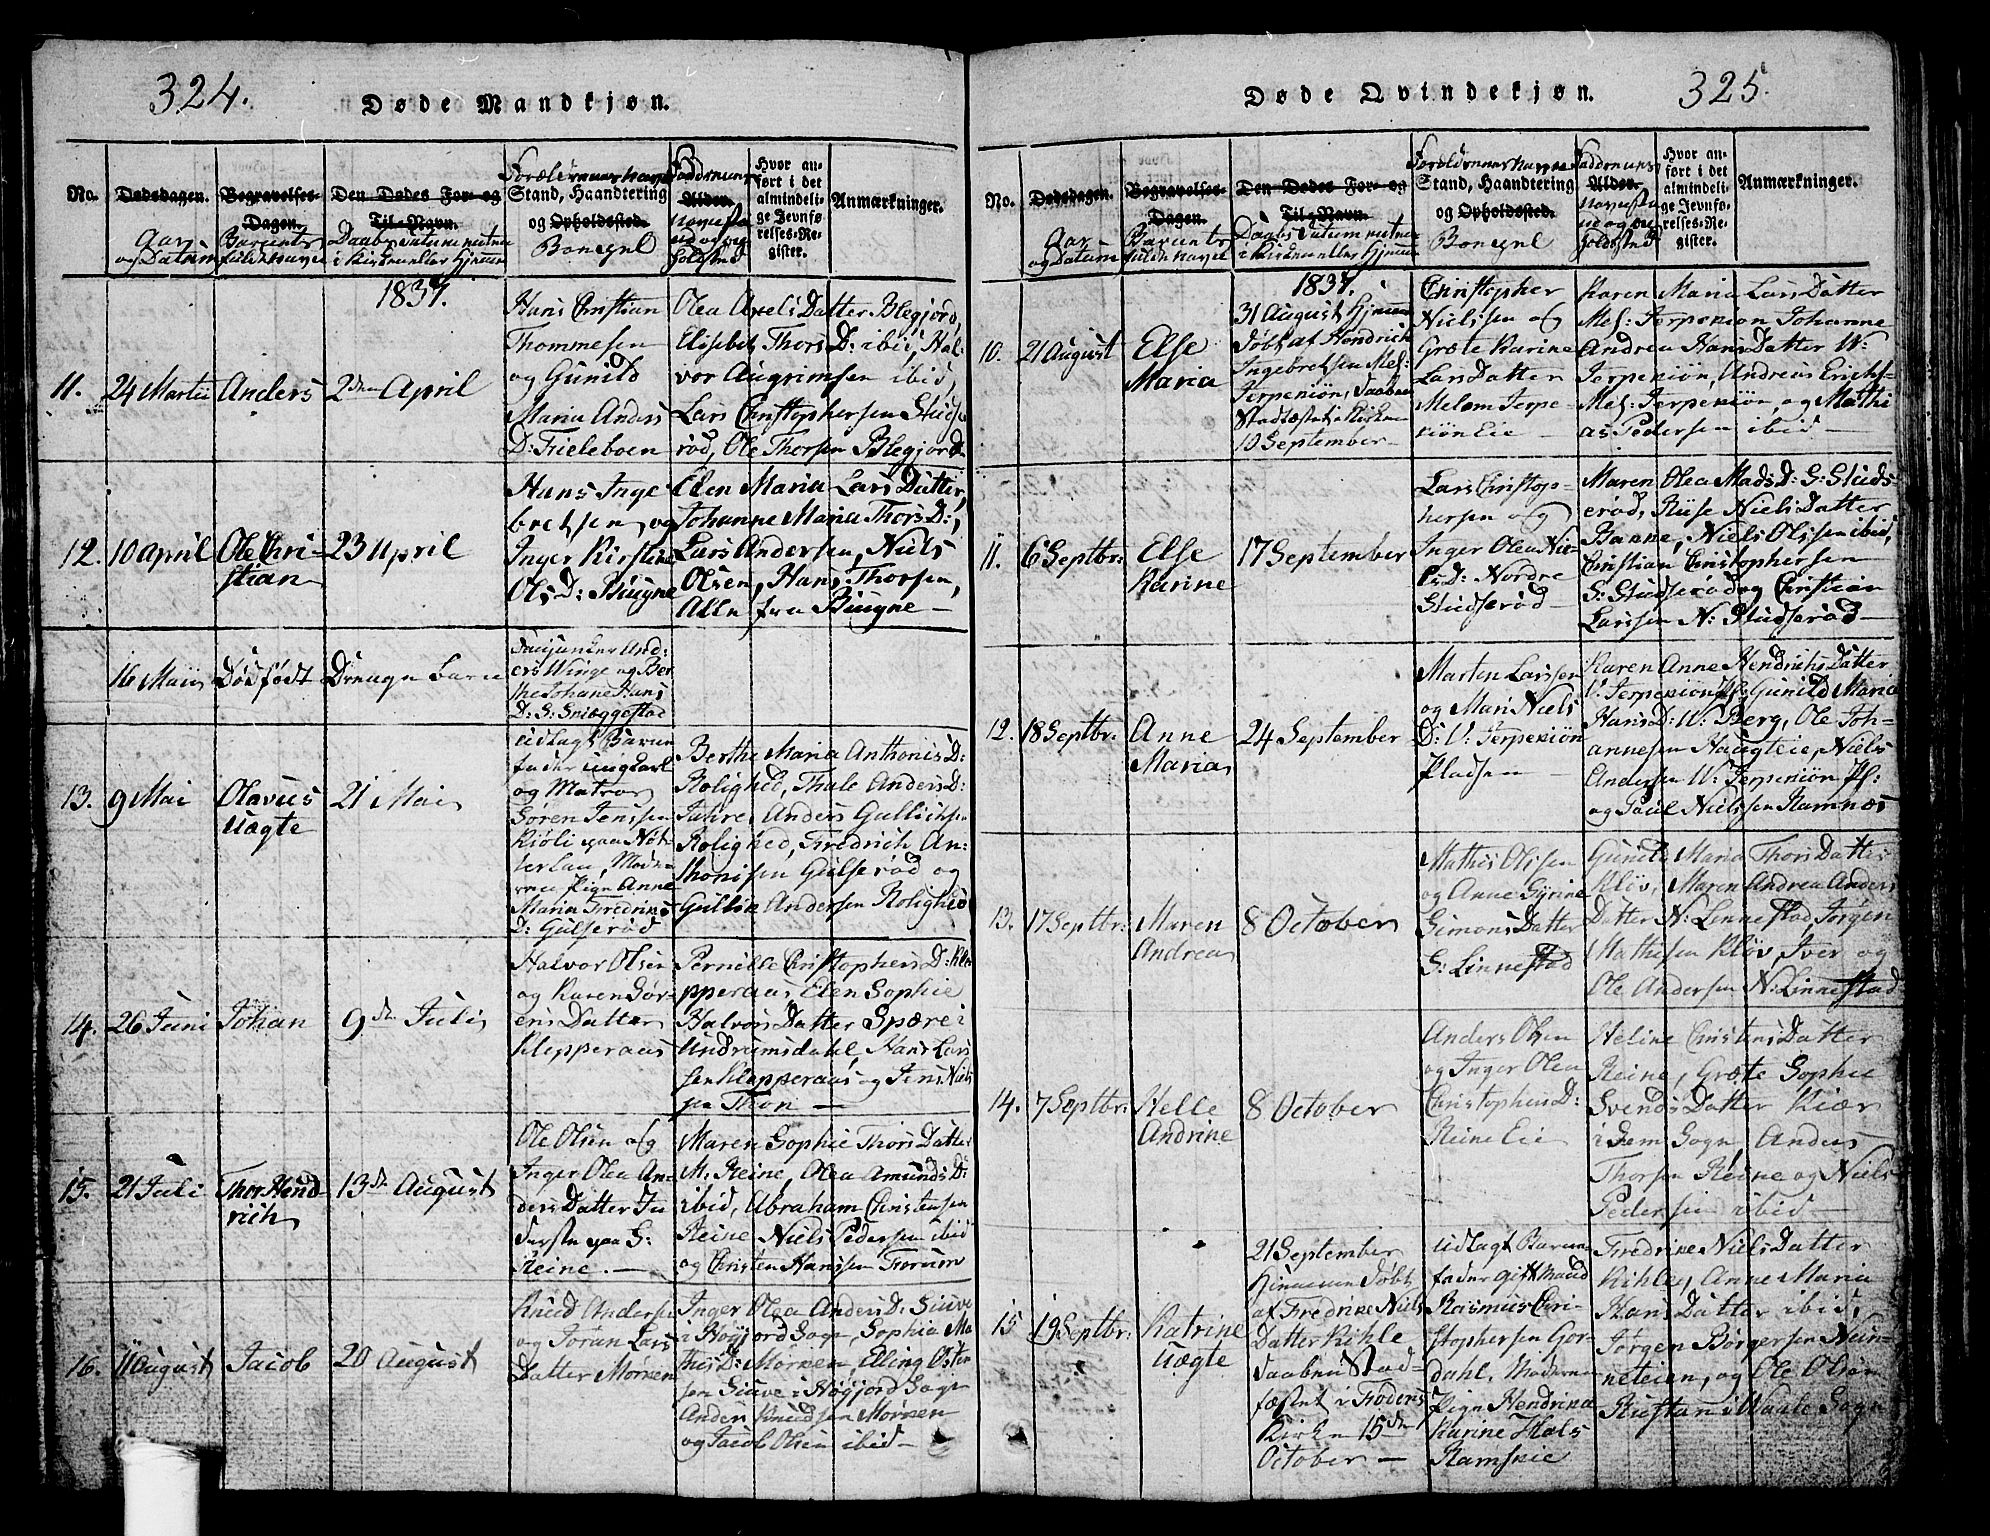 324.
Døde Mandkjøn.
No.
Dødsdagen.
Aar
og Datum
Begravelses-
Dagen.
Barnets
fulde Navn
Den Dødes For- og
Til-Navn.
Daabs Datum enten
i Kirken eller Hjemme
Forældrenes Navne
Stand, Haandtering
og Opholdsted.
Boepæl
Faddernes
Alder.
Navne Stand
og op
holdsted
Hvor an-
ført i det
almindeli-
ge Jevnfø-
relses-Re-
gister.
Anmærkninger.
1837.
11.
24 Martii
Anders
2den April
Hans Christian
Thommesen
og Gunild
Maria Anders
D: Trieleboen
Olea Axels Datter Blegjord,
Elisebet Thors D: ibid, Hal-
vor Augrimsen ibid,
Lars Christophersen Studse
rød, Ole Thorsen Blegjord
12.
10 April
Ole Chri-
stian
23 April
Hans Inge
bretsen og
Inger Kirstine
Ols D: Bugne
Elen Maria Lars Datter,
Johanne Maria Thors D:,
Lars Andersen, Niels
Olsen, Hans Thorsen,
Alle fra Bugne
16 Maii
Dødfødt
Drenge Barn
And-
ers Winge og Ber
the Johane Hans
D: S: Snæggestad
13.
9 Mai
Olavus
Uægte
21 Mai
Udlagt Barne
fader ungkarl
og Matros
Søren Jenssen
Kiøli paa Nøt-
terlau, Mode-
ren Pige Anne
Maria Fredriks
D: Gulserød
Berthe Maria Anthonis D:
Rolighed, Thale Anders D:
Jahre, Anders Gullichsen
Rolighed, Fredrich An-
thonisen Gulserød og
Gullik Andersen Rolighed
14.
26 Juni
Johan
9de Juli
Halvor Olsen
og Karen Sør-
ens Datter
Klepperaas
Pernille Christophers D: Kle
pperaas, Elen Sophie
Halvors Datter Spære i
Undrumsdahl, Hans Lars
sen Klepperaas og Jens Niels
sen Thon
15.
21 Juli
Thor Hend-
rich
13de August
Ole Olsen og
Inger Olea An-
ders Datter In
derste paa S:
Reine.
Maren Sophie Thors Datter
M. Reine, Olea Amunds D:
ibid, Abraham Christensen
Reine, Niels Pedersen ibid
og Christen Hanssen Forum
16.
11 August
Jacob
20 August
Knud Andersen
og Joran Lars
Datter Mørken
Inger Olea Anders D: Siuve
i Høyjord Sogn, Sophia Ma
this D: Mørken, Elling Osten
sen Siuve i Høyjord Sogn
Anders Knudsen Mørken
og Jacob Olsen ibid
325.
Døde Qvindekjøn.
No.
Dødsdagen.
Aar
og Datum
Begravelses-
Dagen.
Barnets
fulde Navn
Den Dødes For- og
Til-Navn.
Daabs Datum enten
i Kirken eller Hjemme
Forældrenes Navne
Stand, Haandtering
og Opholdsted.
Boepæl
Faddernes
Alder.
Navne Stand
og op
holdsted
Hvor an-
ført i det
almindeli-
ge Jevnfø-
relses-Re-
gister.
Anmærkninger.
1837.
10.
21 August
Else
Maria
31 August Hjemme
Døbt af Hendrich
Ingebretsen Mel:
Jerpekiøn, Daaben
Stadfæstet i Kirken
10 September
Christopher
Nielssen og
Grete Karine
Lars Datter
Melom Jerpe-
kiøn Eie
Karen Maria Lars Datter
Mel: Jerpekiøn, Johanne
Andrea Hans Datter W:
Jerpekiøn, Andreas Erichs-
Mel: Jerpekiøn, og Mathi
as Pedersen ibid
11.
6 Septbr:
Else
Karine
17 September
Lars Christop-
hersen og
Inger Olea Nie-
ls D: Nordre
Studserød
Maren Olea Mads D: S: Studs-
erød, Riise Niels Datter
Banne, Niels Olssen ibid,
Christian Christophersen
S: Studserød og Christian
Larssen N: Studserød
12.
18 Septbr:
Anne
Maria
24 September
Marten Larssen
og Mari Niels
D: V: Jerpekiøn
Pladsen
Karen Anne Hendrichs Datter
V: Jerpekiøn Pl: Gunild Maria
Hans D: W: Berg, Ole Joh-
annesen Haugteie, Niels
Andersen W: Jerpekiøn Pl:
og Poul Nielssen Ramnæs
13.
17 Septbr:
Maren
Andrea
8 October
Mathis Olssen
og Anne Gurine
Simons Datter
S: Linnestad
Gunild Maria Thors Datter
Kløv, Maren Andrea Anders
Datter N: Linnestad, Jørgen
Mathisen Kløv, Iver og
Ole Andersen N: Linnestad
14.
7 Septbr:
Helle
Andrine
8 October
Anders Olsen
og Inger Olea
Christophers D:
Reine Eie
Heline Christens Datter
Reine, Grete Sophie
Svends Datter Kiær
i Sem Sogn, Anders
Thorsen Reine og Niels
Pedersen ibid
15
19 Septbr:
Katrine
Uægte
21 September
Hjemme Døbt
af Fredrike Niels
Datter Kihle
Daaben Stad-
fæstet i Fødens
Kirke 15de
October
Udlagt Barne-
fader gift Mand
Rasmus Chri-
stophersen Gor-
dahl, Moderen
Pige Hendrikca
Karine Thols
Ramskie
Fredrike Niels Datter
Kihle, Anne Maria
Hans Datter ibid,
Jørgen Børgersen Nun-
neteien, og Ole Olsen
Rustan i Waale Sogn